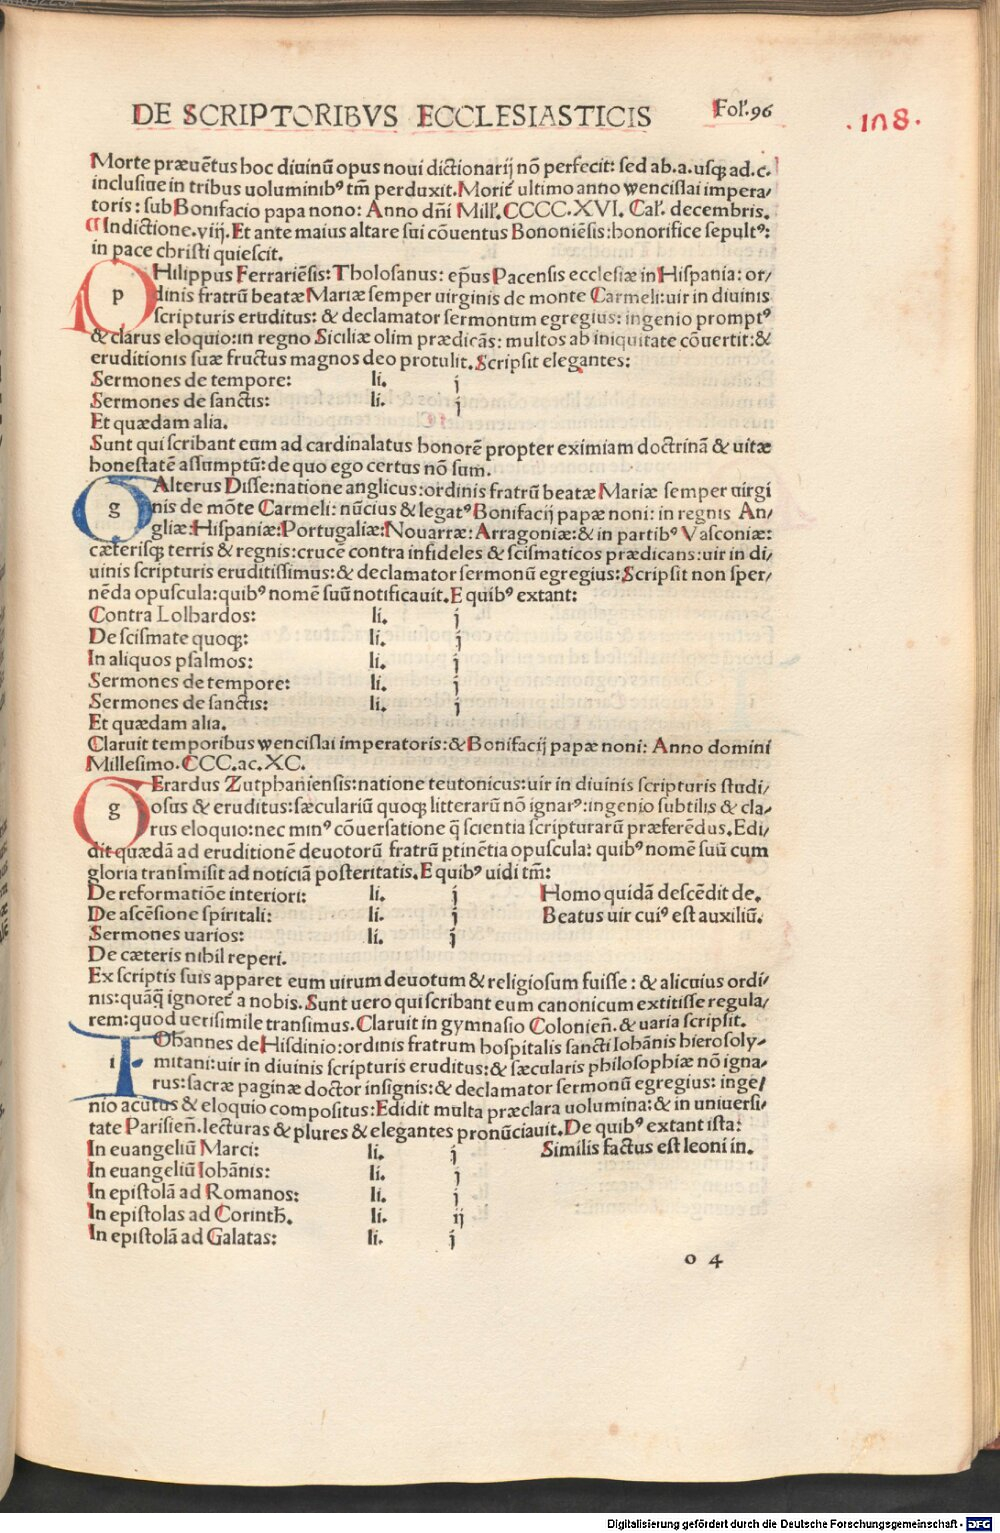 DE SCRIPTORIBVS ECCLESIASTICIS Fol'.96
.108.
Morte præuētus hoc diuinū opus noui dictionarij nō perfecit: sed ab.a.usqꝫ ad.c.
inclusiue in tribus uoluminibꝰ tm̄ perduxit. Morit᷑ ultimo anno wencislai impera/
toris: sub Bonifacio papa nono: Anno dn̄i Mill'. CCCC.XVI. Cal'. decembris.
Indictione.viij. Et ante maius altare sui cōuentus Bononiēsis: honorifice sepultꝰ:
in pace christi quiescit.
p
PHilippus Ferrariēsis: Tholosanus: ep̄us Pacensis ecclesiæ in Hispania: or/
dinis fratrū beatæ Mariæ semper uirginis de monte Carmeli: uir in diuinis
scripturis eruditus: & declamator sermonum egregius: ingenio promptꝰ
& clarus eloquio: in regno Siciliæ olim prædicās: multos ab iniquitate cōuertit: &
eruditionis suæ fructus magnos deo protulit. Scripsit elegantes:
Sermones de tempore: li. j
Sermones de sanctis: li. j
Et quædam alia.
Sunt qui scribant eum ad cardinalatus honorē propter eximiam doctrinā & uitæ
honestatē assumptū: de quo ego certus nō sum.
g
GAlterus Disse: natione anglicus: ordinis fratrū beatæ Mariæ semper uirgi
nis de mōte Carmeli: nūcius & legatꝰ Bonifacij papæ noni: in regnis An/
gliæ: Hispaniæ: Portugaliæ: Nouarræ: Arragoniæ: & in partibꝰ Vasconiæ:
cæterisqꝫ terris & regnis: crucē contra infideles & scismaticos prædicans: uir in di/
uinis scripturis eruditissimus: & declamator sermonū egregius: Scripsit non sper/
nēda opuscula: quibꝰ nomē suū notificauit. E quibꝰ extant:
Contra Lolhardos: li. j
De scismate quoqꝫ: li. j
In aliquos psalmos: li. j
Sermones de tempore: li. j
Sermones de sanctis: li. j
Et quædam alia.
Claruit temporibus wencislai imperatoris: & Bonifacij papæ noni: Anno domini
Millesimo. CCC. ac. XC.
g
GErardus Zutphaniensis: natione teutonicus: uir in diuinis scripturis studi/
osus & eruditus: sæculariū quoqꝫ litterarū nō ignarꝰ: ingenio subtilis & cla/
rus eloquio: nec minꝰ cōuersatione q̄ scientia scripturarū præferēdus. Edi/
dit quædā ad eruditionē deuotorū fratrū ꝑtinētia opuscula: quibꝰ nomē suū cum
gloria transmisit ad noticiā posteritatis. E quibꝰ uidi tm̄:
De reformatiōe interiori: li. j Homo quidā descēdit de.
De ascēsione spiritali: li. j Beatus uir cuiꝰ est auxiliū.
Sermones uarios: li. j
De cæteris nihil reperi.
Ex scriptis suis apparet eum uirum deuotum & religiosum fuisse: & alicuius ordi/
nis: quāq̄ ignoret᷑ a nobis. Sunt uero qui scribant eum canonicum extitisse regula/
rem: quod uerisimile transimus. Claruit in gymnasio Colonien̄. & uaria scripsit.
i
IOhannes de Hisdinio: ordinis fratrum hospitalis sancti Iohānis hierosoly/
mitani: uir in diuinis scripturis eruditus: & sæcularis philosophiæ nō igna/
rus: sacræ paginæ doctor insignis: & declamator sermonū egregius: inge/
nio acutus & eloquio compositus: Edidit multa præclara uolumina: & in uniuersi/
tate Parisien̄. lecturas & plures & elegantes pronūciauit. De quibꝰ extant ista:
In euangeliū Marci: li. j Similis factus est leoni in.
In euangeliū Iohānis: li. j
In epistolā ad Romanos: li. j
In epistolas ad Corinth̄. li. ij
In epistolā ad Galatas: li. j
o 4
Digitalisierung gefördert durch die Deutsche Forschungsgemeinschaft - DFG